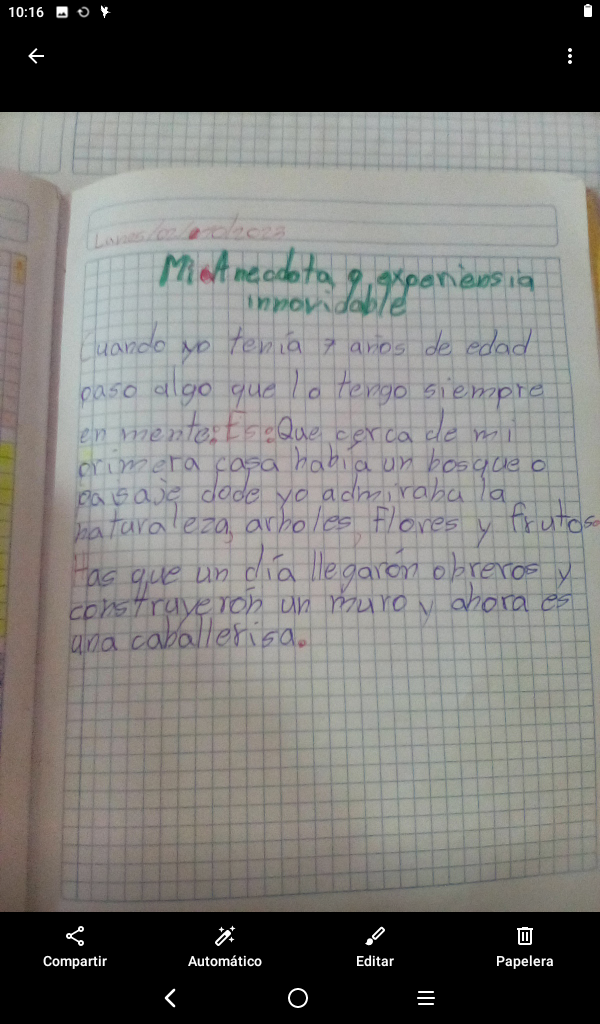 10:16
Lunes/02/10/2023
Mi Anecdota o experiensia
innovidable
Cuando yo tenía 7 años de edad
paso algo que lo tengo siempre
en mente: Es: Que cerca de mi
primera casa había un bosque o
pasaje dode yo admiraba la
naturaleza, arboles, flores y frutos.
Has que un día llegarón obreros y
construyerón un muro y ahora es
una caballerisa.
Compartir
Automático
Editar
Papelera